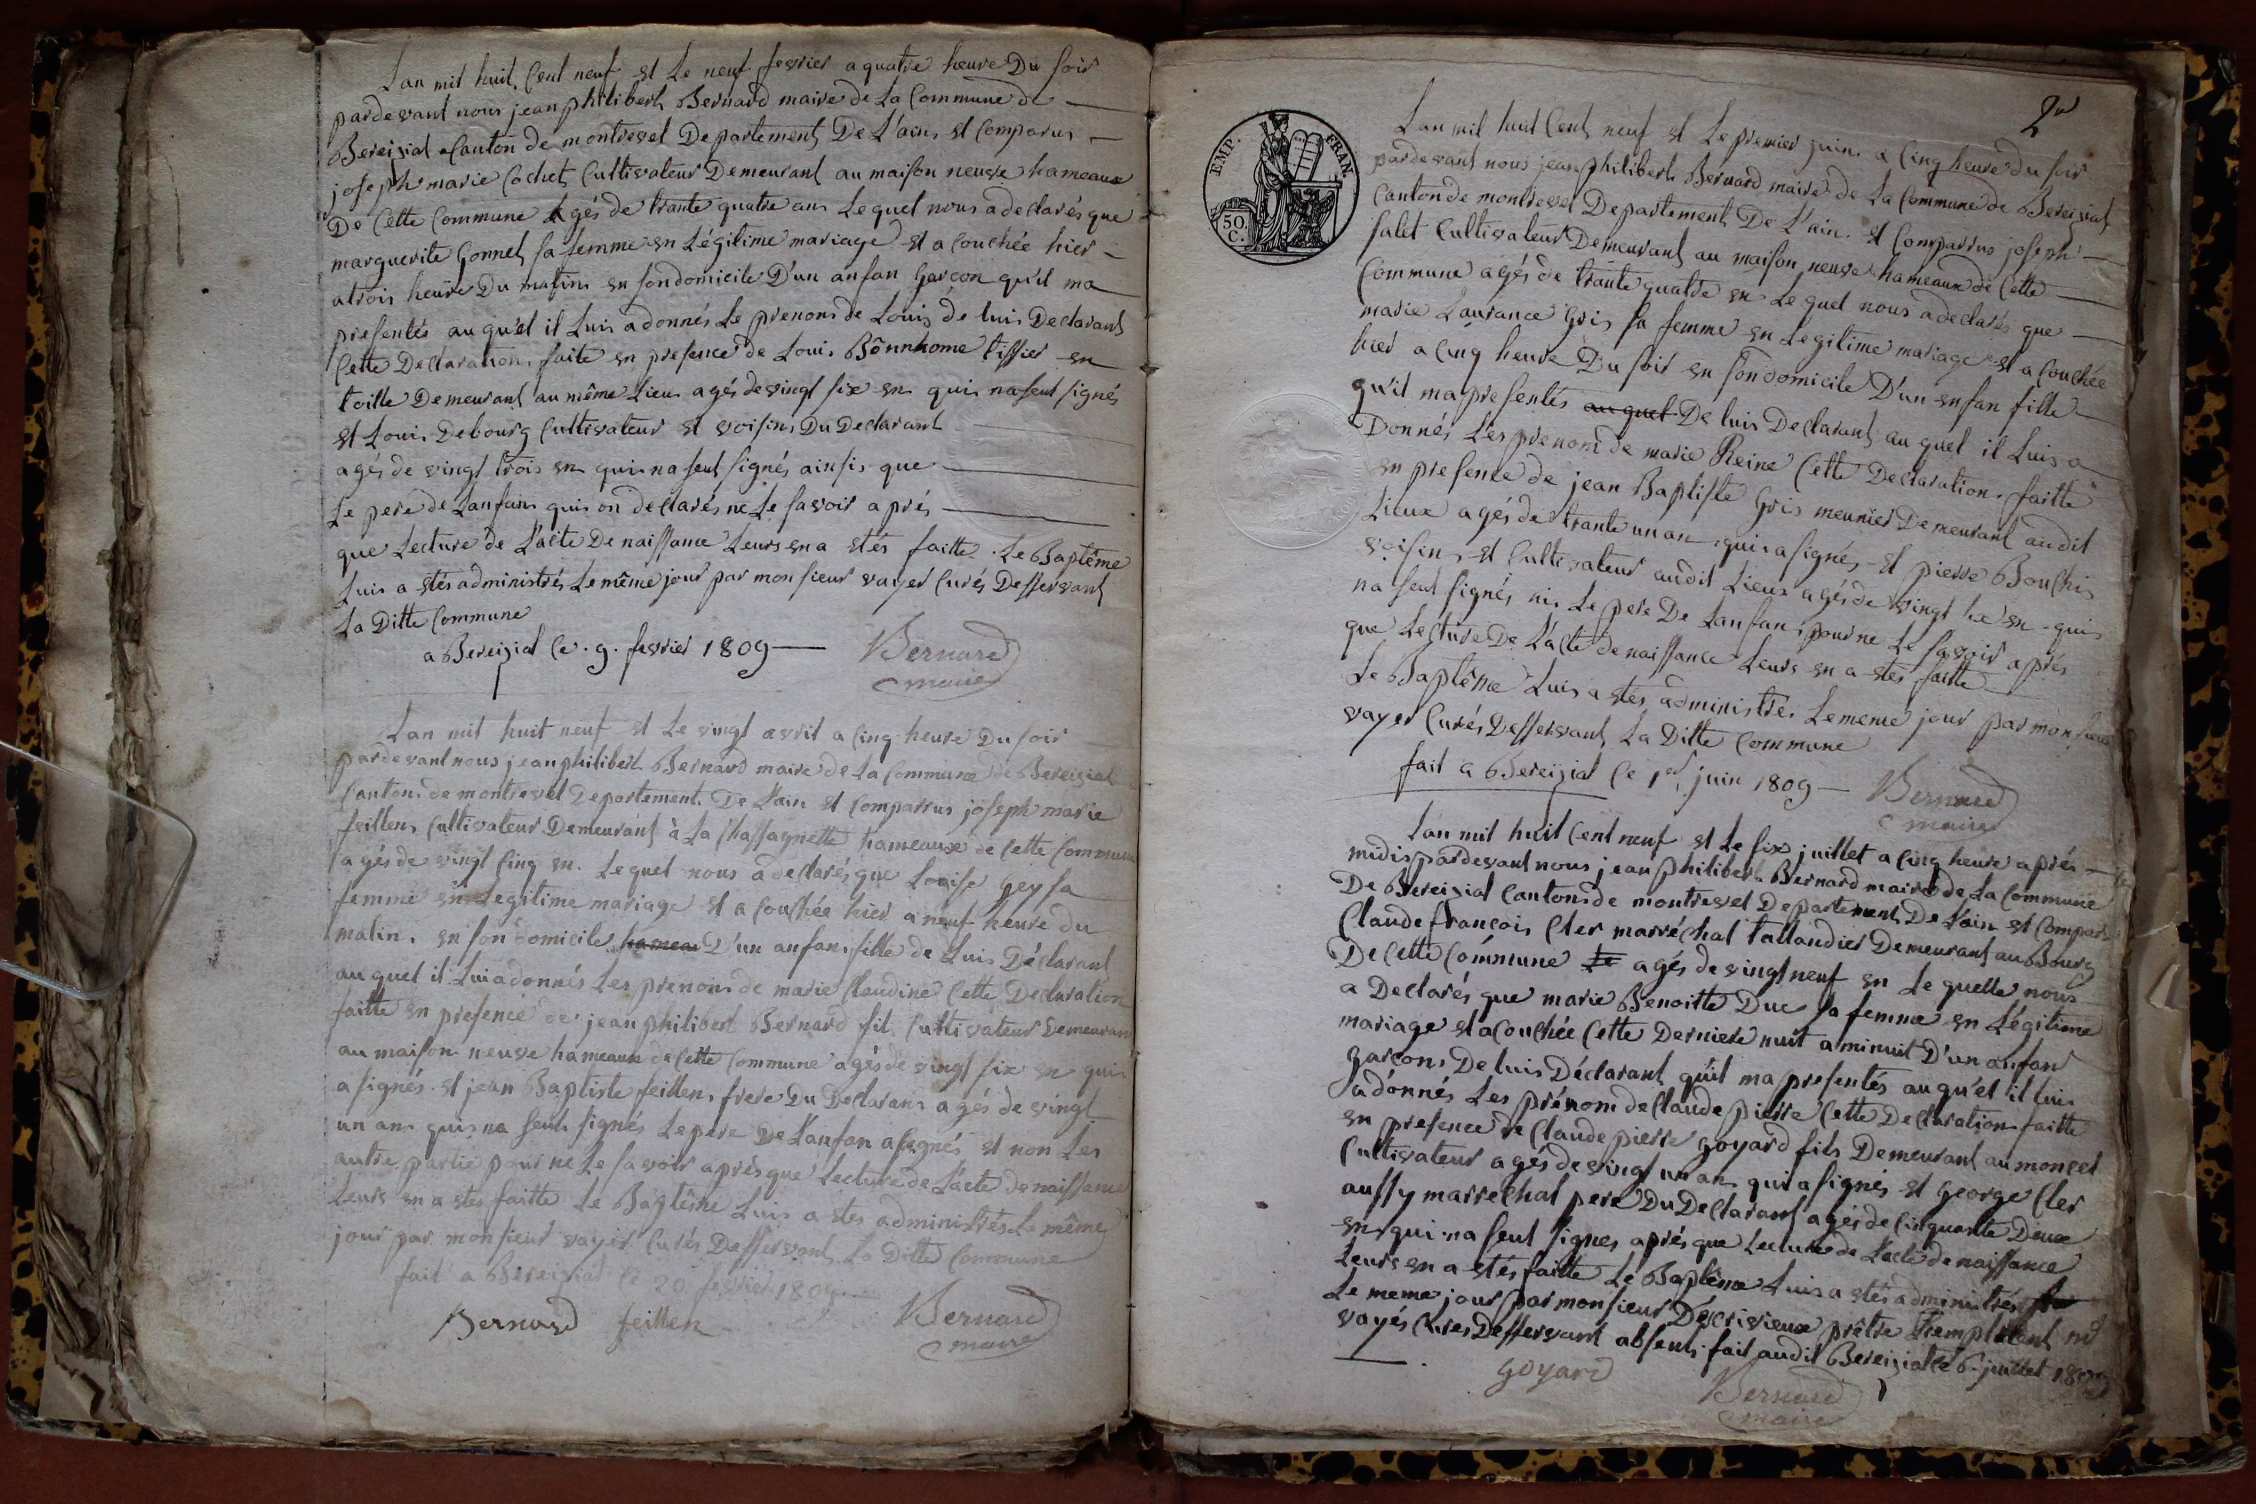 Lan mil huit Cent neuf et Le neuf fevrier a quatre heure Du soir
pardevant nous jean philibert Bernard maire de La Commune de
Bereizial Canton de montrevel Departement De L'ain et Comparus
joseph marie Cochet Cultivateur Demeurant au maison neuve hameaux
De Cette Commune Agés de trante quatre ans Lequel nous a declarés que
marguerite Gonnet sa femme en Légitime mariage et a Couchée hier
atrois heure Du matin en sondomicile D'un anfan Garçon qu'il ma
presentés auqu'el il Luis adonnés Le prenom de Louis de luis Declarant
Cette Declaration faite en presence de Louis Bônnhome tissier en
toille Demeurant au même Lieu agés devingt six en qui naseut signés
et Louis Debourg Cultivateur et voisin Du Declarant
agés de vingt trois en qui naseut signés ainsis que
Le pere de Lanfan quis on declarés ne Le savoir aprés
que Lecture de L'acte De naissance Leurs en a etés faitte. Le Baptême
Luis a etés administrés Le même jour par monsieur vayer Curés Desservant
La Ditte Commune
a Bereizial Ce . 9 . fevrier 1809
Bernard
maire
Lan mil huit neuf et Le vingt avril a Cinq heure Du soir
pardevant nous jean philibert Bernard maire de La Commune de Bereizial
Canton de montrevel Departement De L'ain et Comparrus joseph marie
feillens Cultivateur Demeurant à La Chassagnette hameaux de Cette Commune
agés de vingt Cinq en. Lequel nous a declarés que Louise Gey sa
femme en Legitime mariage et a Couchée hier a neuf heure du
matin. en son domicile hameau D'un anfan fille de Luis Déclarant
auquel il Luis adonnés Les prenom de marie Claudine Cette Declaration
faitte en presence de jean philibert Bernard fil Cultivateur Demeurant
au maison neuve hameaux de Cette Commune agés de vingt six en qui
a signés et jean Baptiste feillens frere Du Declarans agés de vingt
un ans quis na seut signés Le pere De L'anfan a signés et non Les
autre partie pour ne Le savoir aprés que Lecture de L'acte de naissance
Leurs en a etes faitte Le Baptême Luis a etes administrés Le même
jour par monsieur vayer Curés Desservant La Ditte Commune
fait a Bereizial Ce 20 fevrier 1809
Bernard feillen Bernard
maire
2
EMP. FRAN.
50
C.
Lan mil huit Cent neuf et Le premier juin a Cinq heure du soir
pardevant nous jean philibert Bernard maire de La Commune de Bereizial
Canton de montrevel Departement De L'ain. et Comparrus joseph
salit Cultivateur Demeurant au maison neuve hameaux de Cette
Commune agés de trante quatre en Lequel nous a declarés que
marie Laurance Gris sa femme en Legitime mariage et a Couchée
hier a Cinq heure Du soir en son domicile D'un enfan fille
qu'il ma presentés auquel De luis Declarant auquel il Luis a
Donnés Les prenom de marie Reine Cette Declaration faitte
en presence de jean Baptiste Gris meunier Demeurant audit
Lieux agés de trante un an quis a signés et pierre Bouchi
voisin et Cultivateur audit Lieux agés de vingt en quis
na seut signés nis Le pere De Lanfan pour ne Le savoir aprés
que Lecture De L'acte de naissance Leurs en a etés faitte
Le Baptême Luis a etés administrés Le meme jour par monsieur
vayer Curés Desservant La Ditte Commune
fait a Bereizial Ce 1er juin 1809
Bernard
maire
Lan mil huit Cent neuf et Le six juillet a Cinq heure aprés
midis pardevant nous jean philibert Bernard maire de La Commune
De Bereizial Canton de montrevel Departement De L'ain et Compar
Claude françois Cler marréchal tallandier Demeurant au Bourg
De Cette Commune Le agés de vingt neuf en Le quelle nous
a Declarés que marie Benoitte Duc sa femme en Légitime
mariage et a Couchée Cette Derniere nuit a minuit D'un anfan
garçon De luis Déclarant qu'il ma presentés auqu'el il luis
adonnés Les prénom de Claude pierre Cette Declaration faitte
en presence de Claude pierre Goyard fils Demeurant au moncel
Cultivateur agés de vingt un an qui a signés et George Cler
aussy marrechal pere Du Declarant agés de Cinquante Deux
en qui na seut signes aprés que Lecture de L'acte de naissance
Leurs en a etés faitte Le Baptême Luis a etés administrés
Le meme jour par monsieur Descrivieux prêtre Remplacant mr
vayés Cures Desservant absent fait audit Bereizial Ce 6 juillet 1809
Goyard Bernard
maire